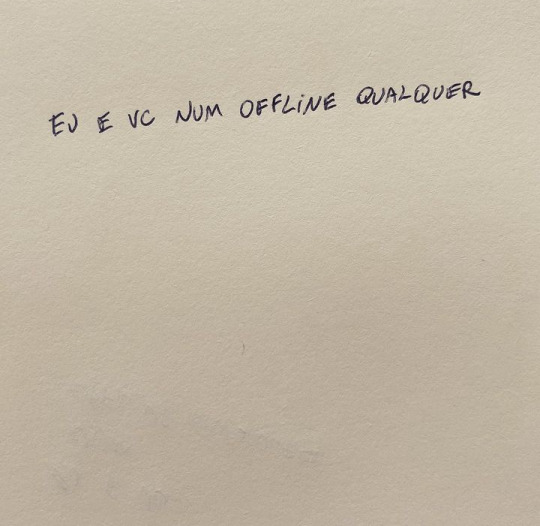 EU E VC NUM OFFLINE QUALQUER